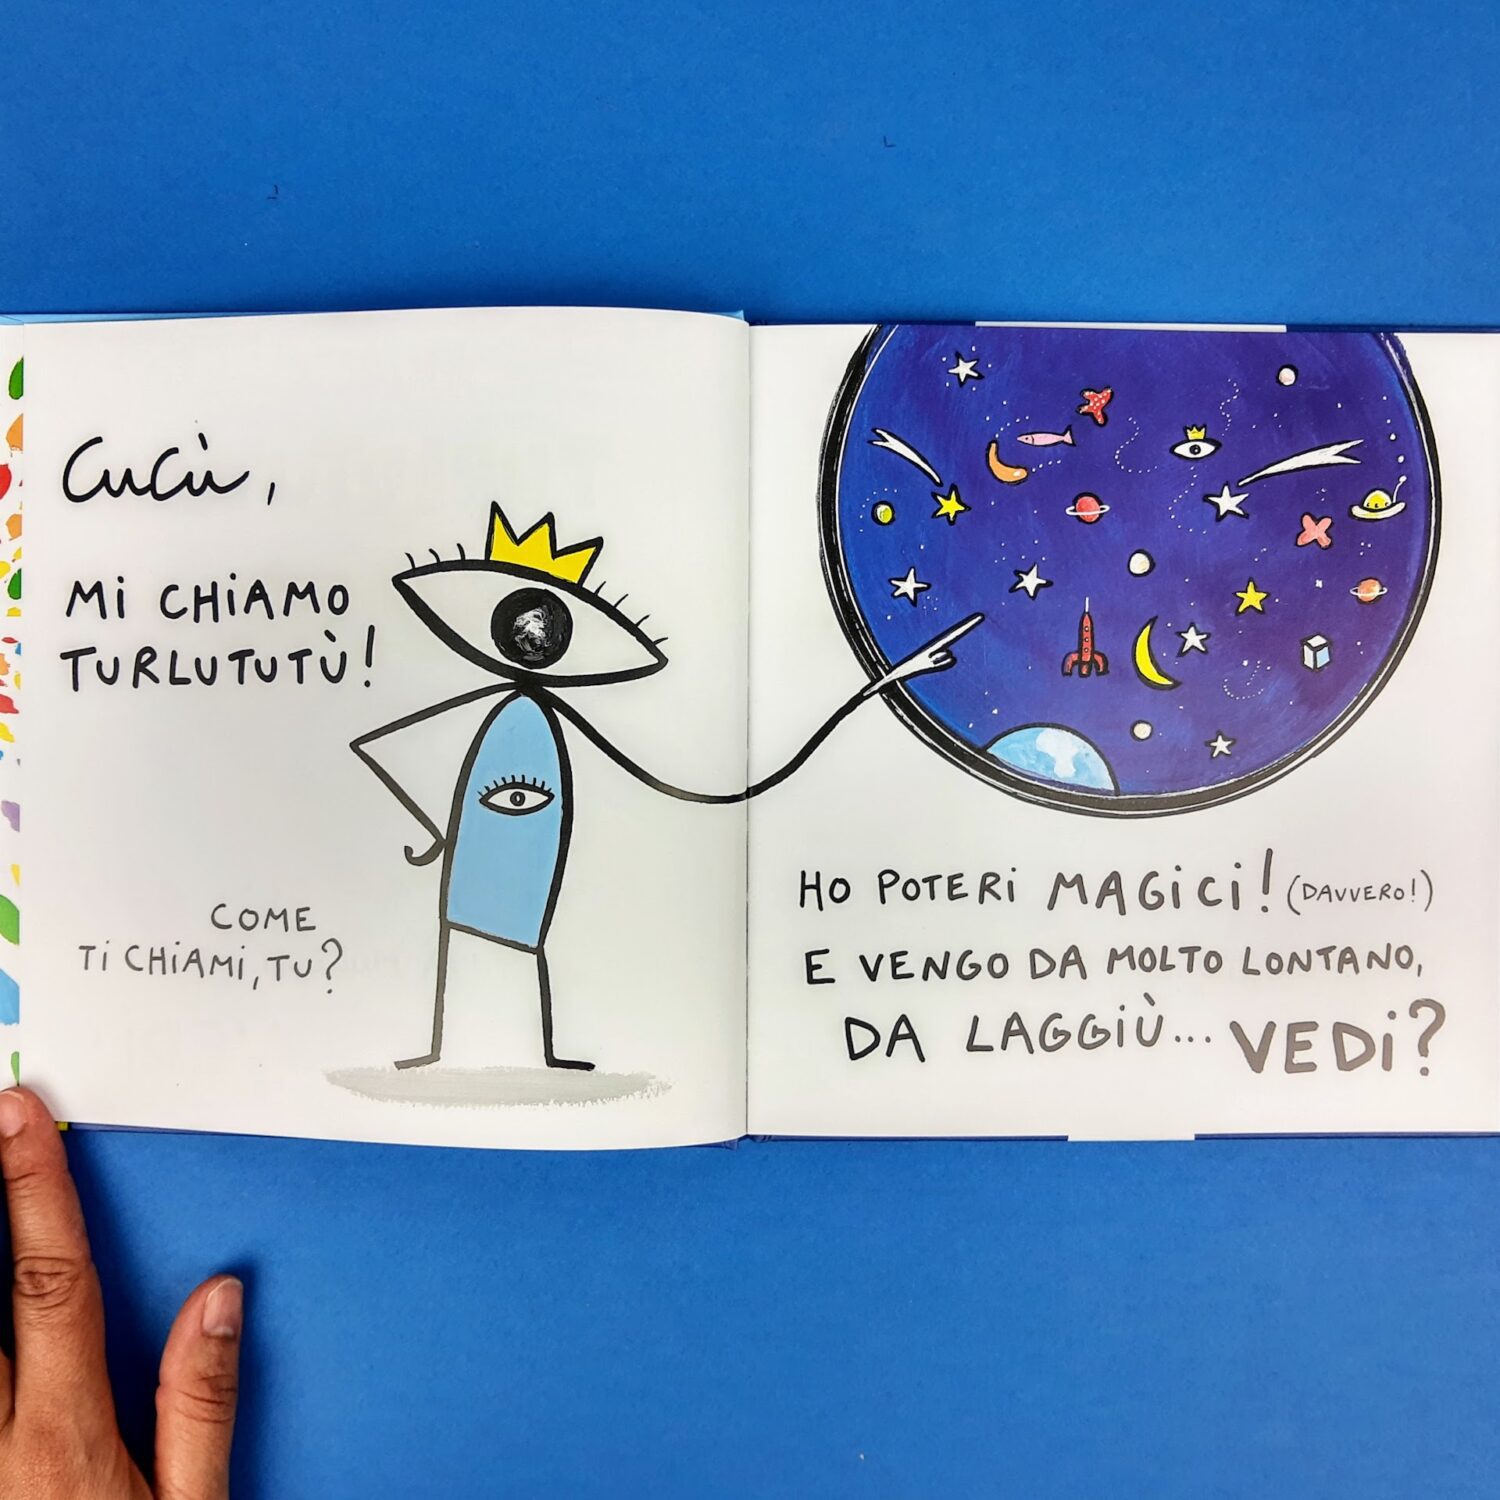 Cucù,
MI CHIAMO
TURLUTUTÙ!
COME
TI CHIAMI, TU?
HO POTERI MAGICI! (DAVVERO!)
E VENGO DA MOLTO LONTANO,
DA LAGGIÙ... VEDI?